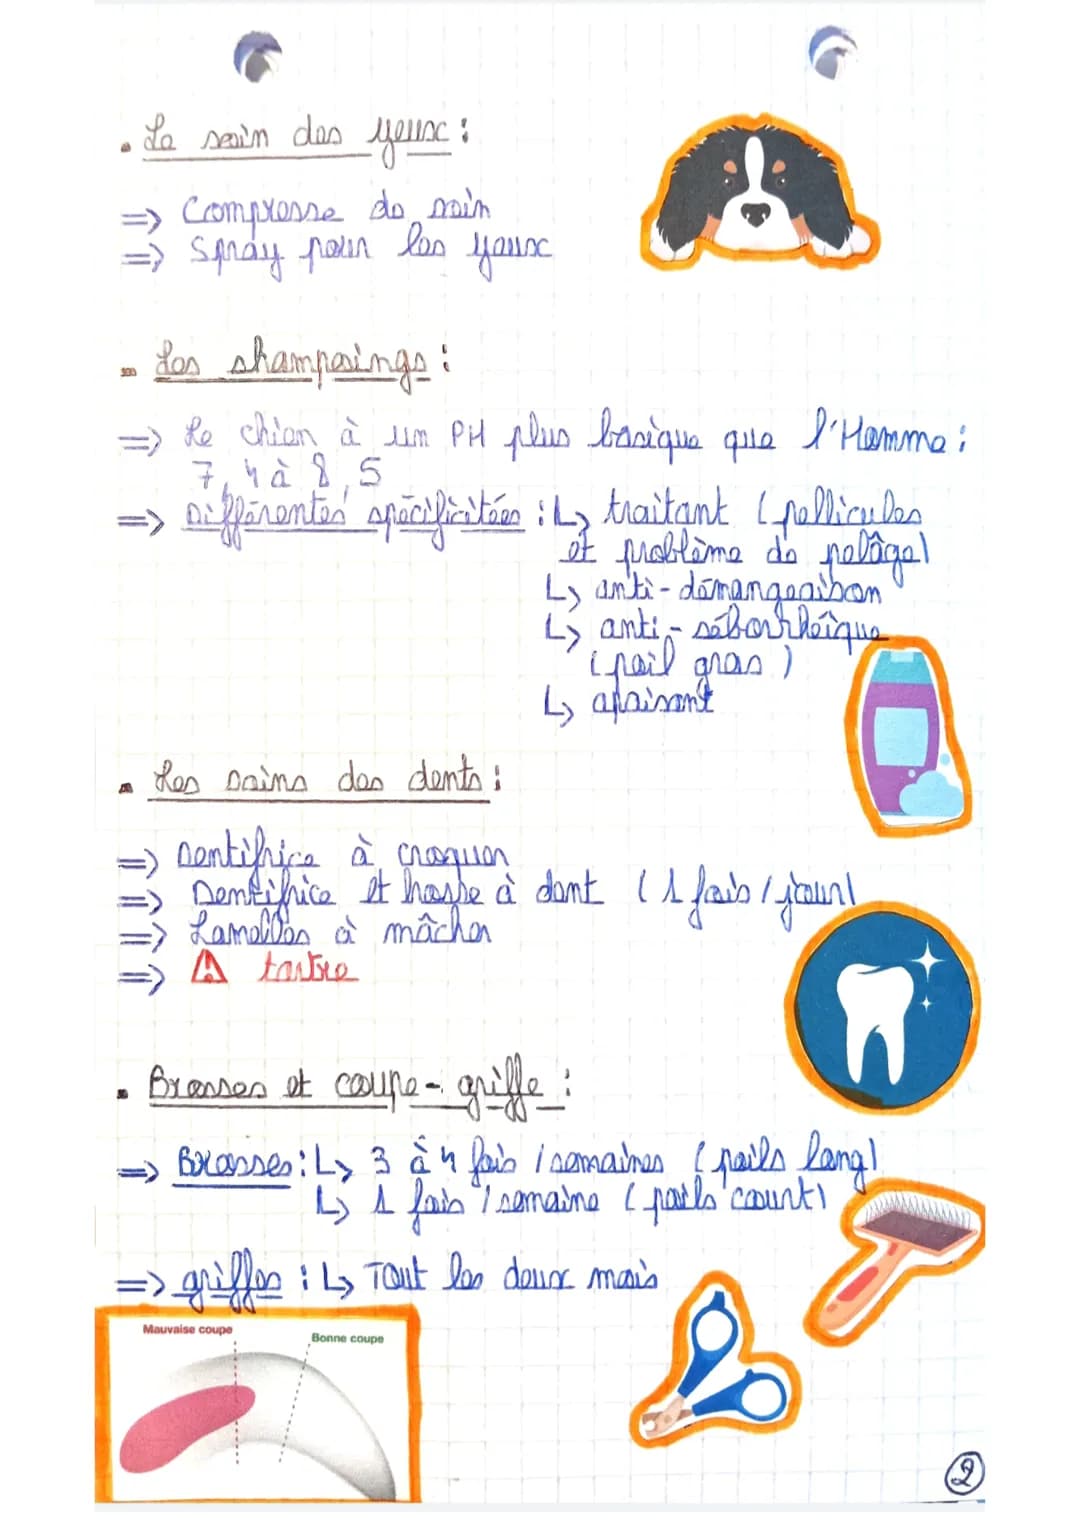 • Le soin des yeux :
=> Compresse de soin
=> Spray pour les yeux
• Les shampoings :
=> Le chien à un PH plus basique que l'Homme :
7,4 à 8,5
=> Différentes spécificitées : ↳ traitant (pellicules
et problème de pelâge)
↳ anti-démangeaison
↳ anti-séborrhéïque
(poil gras)
↳ apaisant
• Les soins des dents :
=> Dentifrice à croquer
=> Dentifrice et brosse à dent (1 fois/jour)
=> Lamelles à mâcher
=> ⚠ tartre
• Brosses et coupe-griffe :
=> Brosses : ↳ 3 à 4 fois/semaines (poils long)
↳ 1 fois/semaine (poils court)
=> griffes : ↳ Tout les deux mois
Mauvaise coupe
Bonne coupe
2